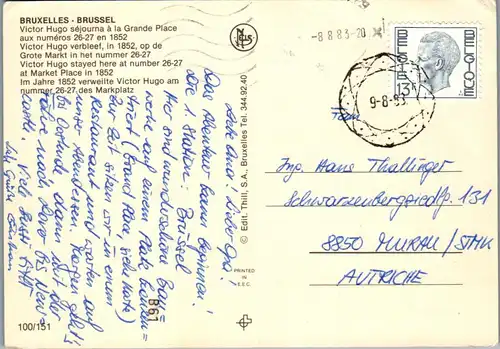 BRUXELLES - BRUSSEL
Victor Hugo séjourna à la Grande Place
aux numéros 26-27 en 1852
Victor Hugo verbleef, in 1852, op de
Grote Markt in het nummer 26-27
Victor Hugo stayed here at number 26-27
at Market Place in 1852
Im Jahre 1852 verweilte Victor Hugo am
nummer 26-27 des Markplatz
Liebe Oma! Lieber Opi!
Das Abenteuer kann beginnen!
Die 1. Station: Brüssel
wunderschöne
auf einem Platz
(Grand Place, siehe Karte)
Zur Zeit sitzen wir in einem
Restaurant und warten auf
unser Abendessen. Morgen geht's
dann mit der
Fähre nach Dover bis New-
Viele Bussi
100/151
B61
© Edit. Thill, S.A., Bruxelles Tel. 344.92.40
PRINTED
IN
E.E.C.
-8 8 83-20
BELGIE BELGIQUE
13F
9-8-83
Ing. Hans Thallinger
Schwarzenbergsiedl. 131
8850 MURAU/STMK
AUTRICHE